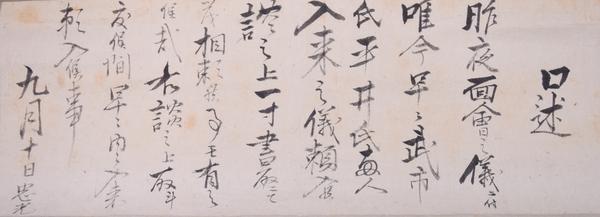 口述
昨夜面會之儀ニ付
唯今早々武市
氏平井氏両人
入来之儀頼入候
談之上一寸書取之
談
茂相頼候事も有之
候哉右談之上取斗
度候間早々内々入来
頼入候事
九月十日